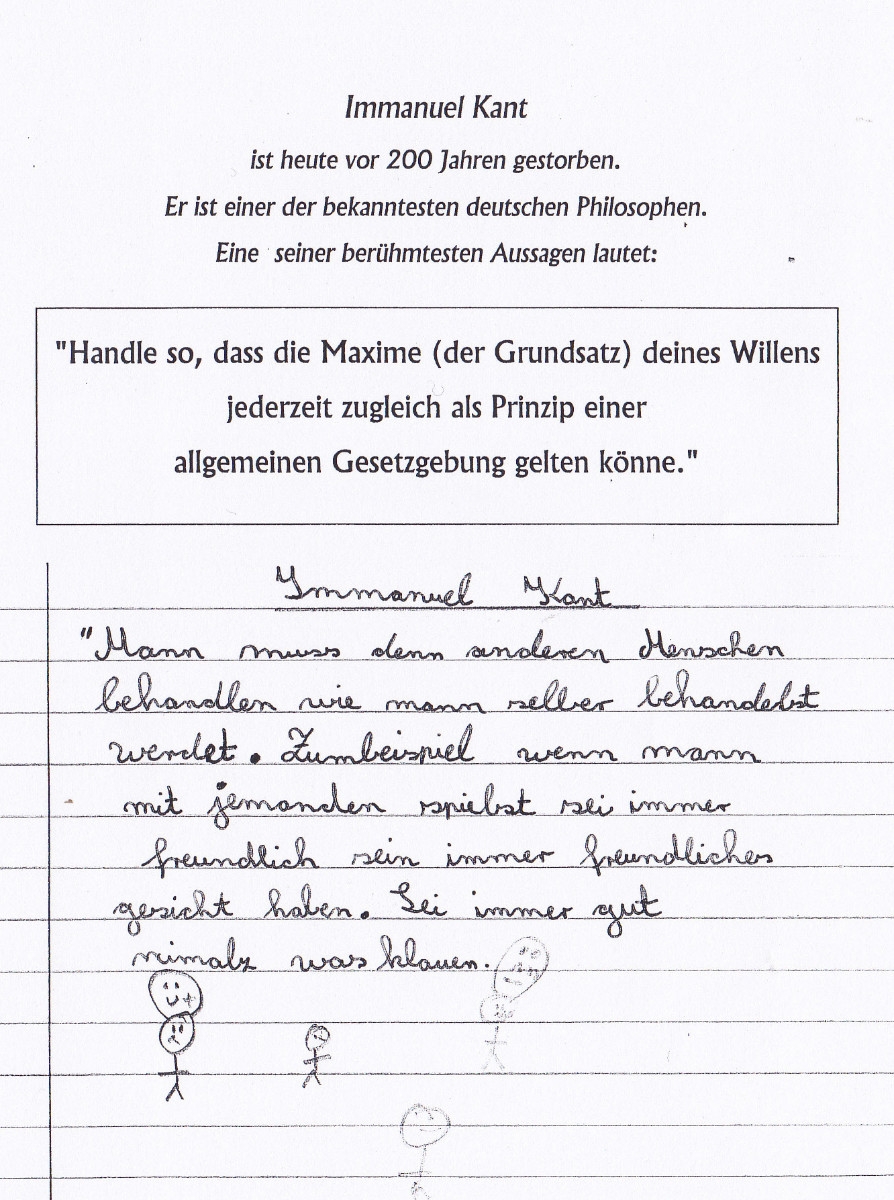 Immanuel Kant
ist heute vor 200 Jahren gestorben.
Er ist einer der bekanntesten deutschen Philosophen.
Eine seiner berühmtesten Aussagen lautet:
"Handle so, dass die Maxime (der Grundsatz) deines Willens
jederzeit zugleich als Prinzip einer
allgemeinen Gesetzgebung gelten könne."
Immanuel Kant
"Mann muss denn anderen Menschen
behandlen wie mann selber behandelst
werdet. Zumbeispiel wenn mann
mit jemanden spielst sei immer
freundlich sein immer freundliches
gesicht haben. Sei immer gut
nimalz was klauen.